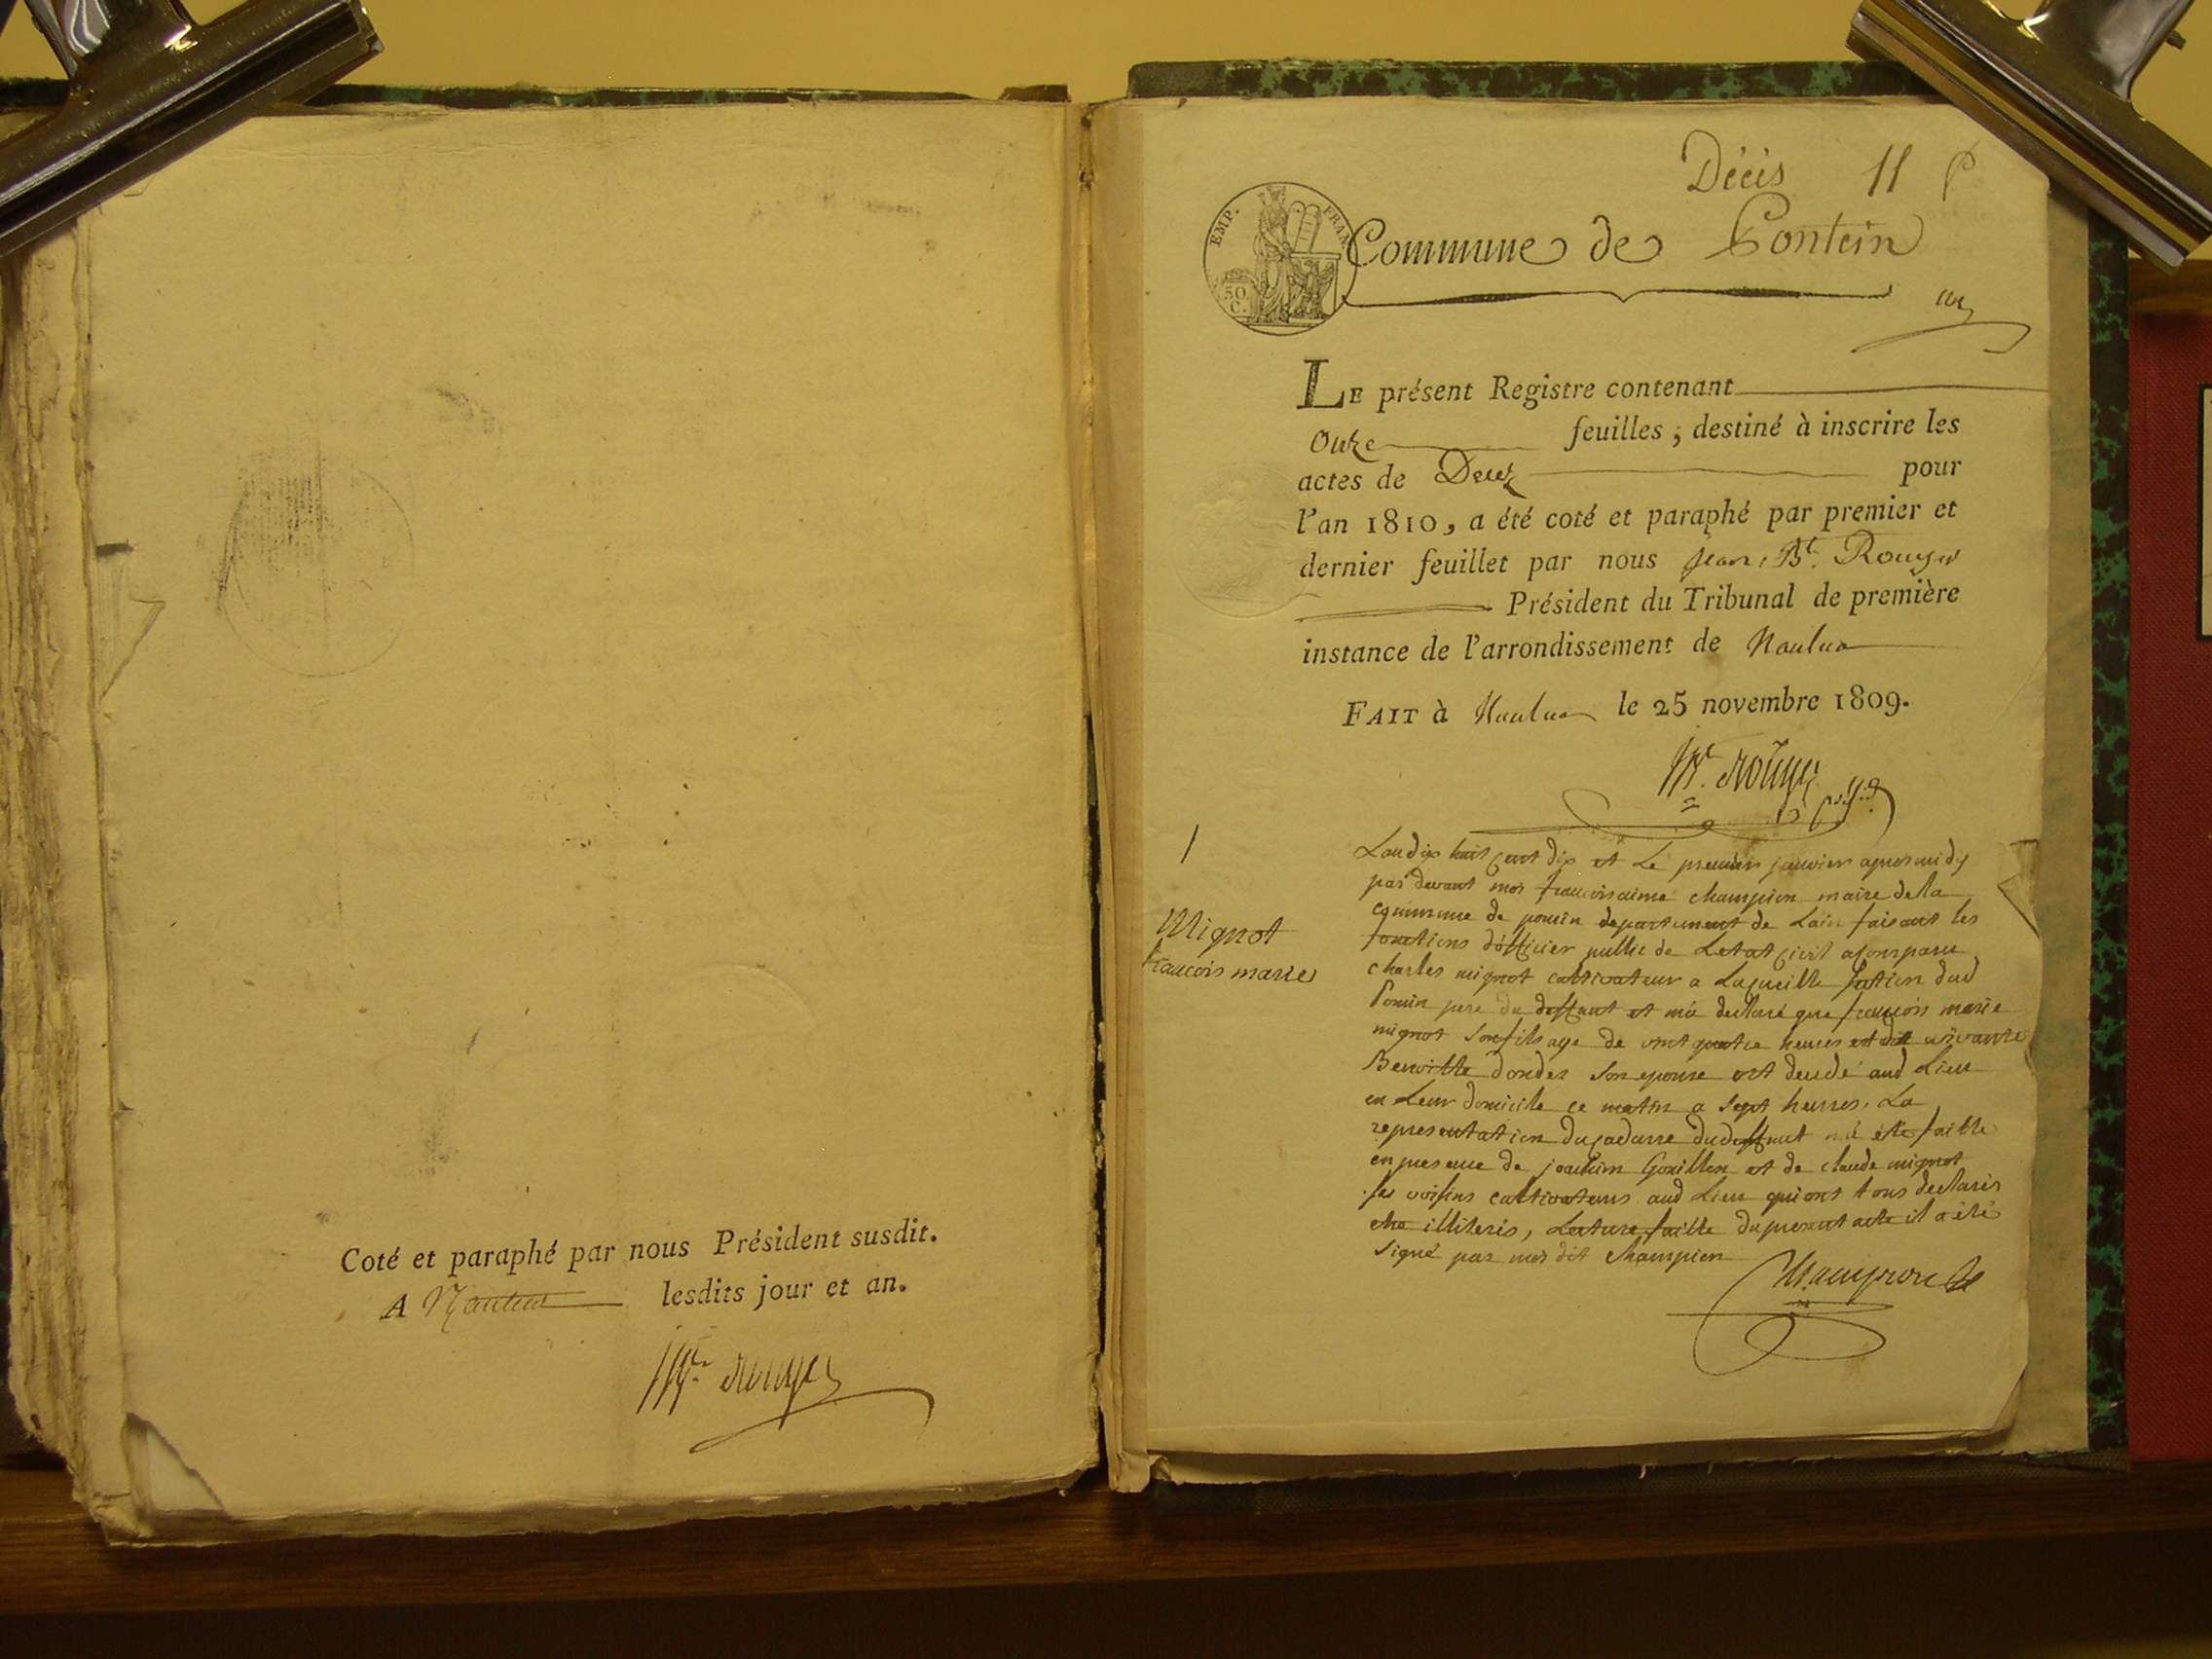 Coté et paraphé par nous Président susdit.
A Nantua lesdits jour et an.
Décès 11
EMP. FRAN.
50 C.
Commune de Poncin
un
LE présent Registre contenant
Onze feuilles, destiné à inscrire les
actes de Decès pour
l'an 1810, a été coté et paraphé par premier et
dernier feuillet par nous Jean Bte. Rouyer
Président du Tribunal de première
instance de l'arrondissement de Nantua
FAIT à Nantua le 25 novembre 1809.
1
Mignot
francois marie
Lan dix huit cent dix et Le premier janvier apres midy
par devant moi francois aime champion maire de la
commune de poncin departement de Lain faisant les
fonctions dofficier public de Letat civil a comparu
charles mignot cultivateur a Lacueille section dud
Poncin pere du deffunt et m'a declaré que francois marie
mignot son fils age de vint quatre heures et de vivante
Benoitte dondes son epouse est decedé aud Lieu
en Leur domicile ce matin a sept heures, La
representation du cadavre du deffunt m'a été faitte
en presence de joachim Gouillon et de claude mignot
ses voisins cultivateurs aud Lieu qui ont tous declarés
etre illiterés, Lecture faitte du present acte il a été
signé par moi dit champion
Champion